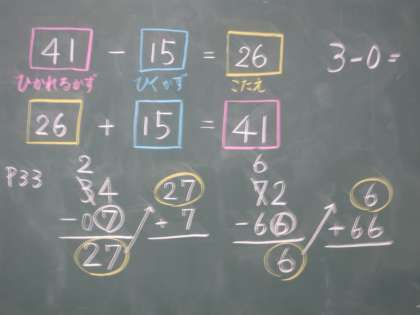 41 - 15 = 26 3-0=
ひかれるかず ひくかず こたえ
26 + 15 = 41
P33
2 6
34 27 72 6
- 07 + 7 - 66 + 66
27 6